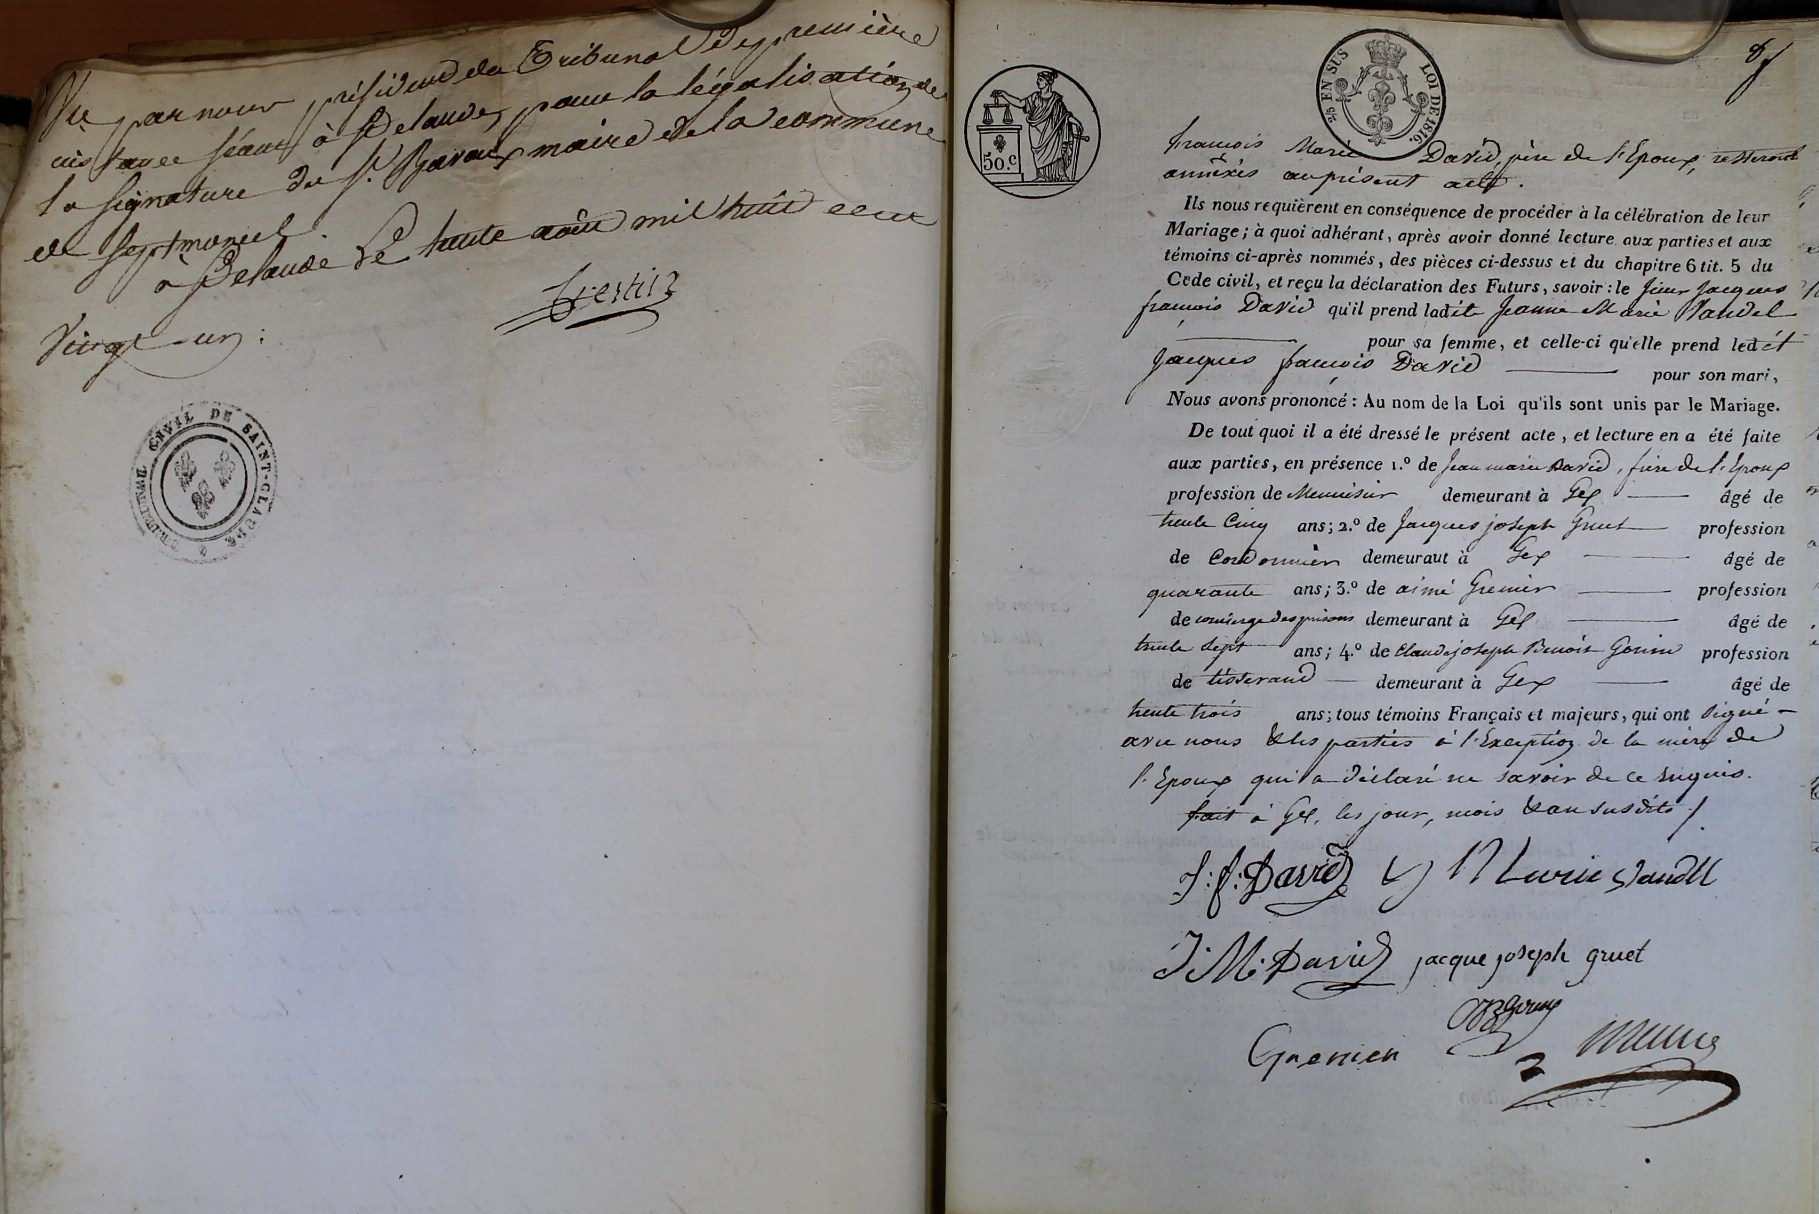 Vu par nous président du Tribunal de première
instance séant à St Claude, pour la légalisation de
la signature du Sr. maire de la commune
de Septmoncel.
à St Claude le trente août mil huit cent
Vingt-un :
TRIBUNAL CIVIL DE SAINT-CLAUDE
50.c
EN SUS LOI DE 1816.
françois Marie David, père de l'Epoux, resteront
annéxés au présent acte.
Ils nous requièrent en conséquence de procéder à la célébration de leur
Mariage; à quoi adhérant, après avoir donné lecture aux parties et aux
témoins ci-après nommés, des pièces ci-dessus et du chapitre 6 tit. 5 du
Code civil, et reçu la déclaration des Futurs, savoir : le sieur Jacques
françois David qu'il prend ladite Jeanne Marie Vandel
pour sa femme, et celle-ci qu'elle prend ledit
Jacques françois David pour son mari,
Nous avons prononcé : Au nom de la Loi qu'ils sont unis par le Mariage.
De tout quoi il a été dressé le présent acte, et lecture en a été faite
aux parties, en présence 1.º de Jean marie David, frère de l'Epoux
profession de Menuisier demeurant à Gex âgé de
trente Cinq ans; 2.º de Jacques joseph Gruet profession
de Cordonnier demeurant à Gex âgé de
quarante ans; 3.º de aimé Grenier profession
de concierge des prisons demeurant à Gex âgé de
trente Sept ans; 4.º de Claude joseph Benoit profession
de tisserand demeurant à Gex âgé de
trente trois ans; tous témoins Français et majeurs, qui ont signé
avec nous & les parties à l'Exception de la mère de
l'Epoux qui a déclaré ne savoir de ce enquis.
fait à Gex, les jour, mois & an susdits.
J: f: David Marie Vandel
J: M: David jacque joseph gruet
Grenier